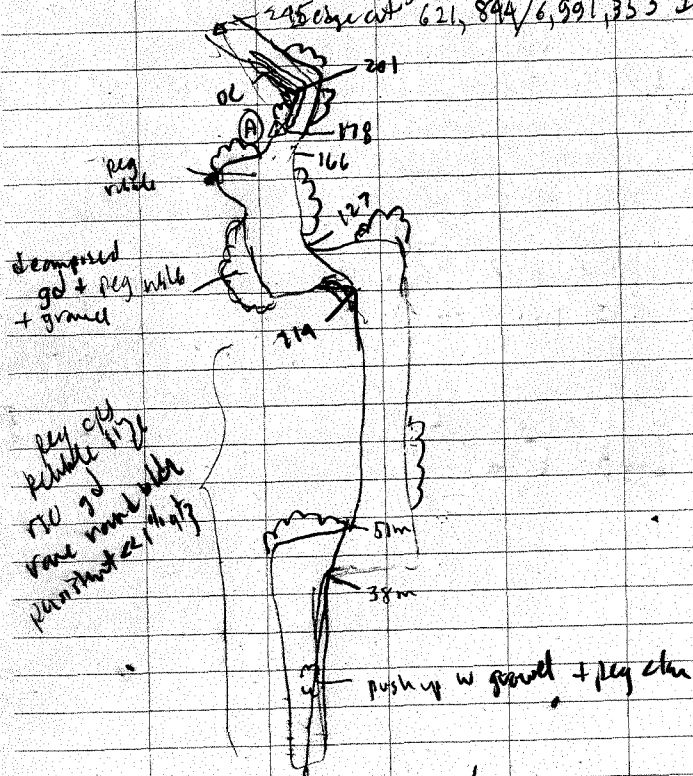 245 edge cut 621,844/6,991,353
201
OC
178
A
166
peg
rubble
127
decomposed
gd + peg rubble
+ gravel
119
peg
pebble size
no gd
rare round
51m
38m
push up w gravel + peg